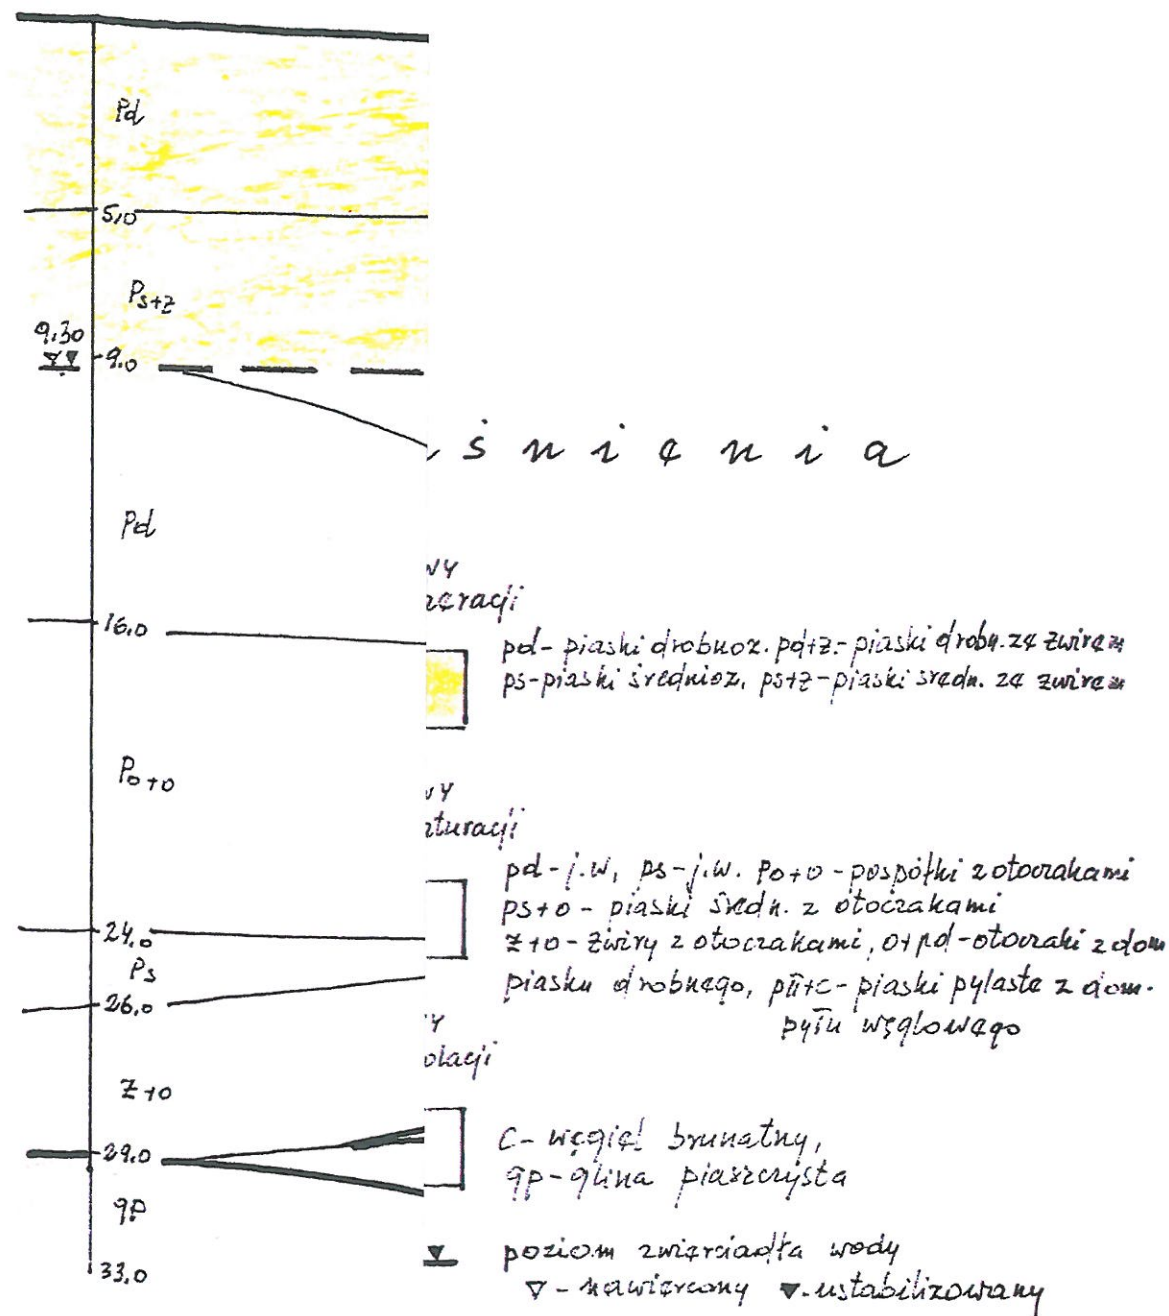 Pd
5,0
Ps+ż
9.30
9.0
śnienia
Pd
wy
neracji
16.0
pd- piaski drobnoz. pd+ż- piaski drobn. ze żwirem
ps-piaski średnioz, ps+ż-piaski średn. ze żwirem
Po+o
wy
aturacji
pd-j.w, ps-j.w. Po+o-pospółki z otoczakami
ps+o - piaski średn. z otoczakami
24.0
ż+o-żwiry z otoczakami, o+pd-otoczaki z dom
Ps
piasku drobnego, pπ+c-piaski pylaste z dom.
26.0
pyłu węglowego
y
olacji
ż+o
C- węgiel brunatny,
29.0
gp-glina piaszczysta
gp
poziom zwierciadła wody
33.0
▽ - nawiercony ▼-ustabilizowany